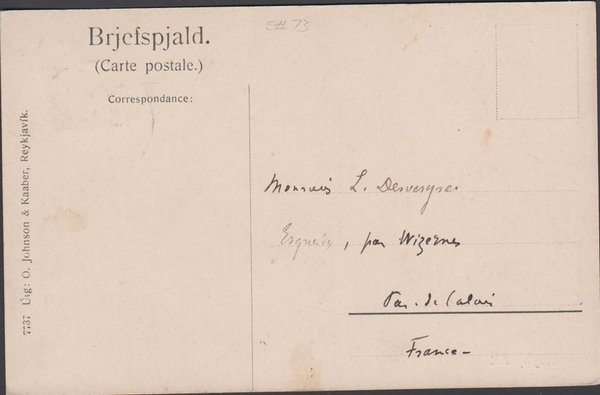 Brjefspjald.
(Carte postale.)
Correspondance:
7737 Útg: O. Johnson & Kaaber, Reykjavík.
Monsieur L.
, par Wizernes
Pas-de-Calais
France-